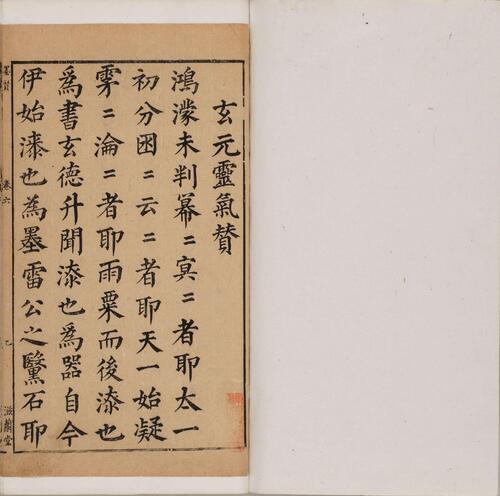 玄元靈氣賛
鴻濛未判冪〻冥〻者耶太一
初分囦〻云〻者耶天一始凝
雱〻淪〻者耶雨粟而後漆也
爲書玄德升聞漆也爲器自今
伊始漆也為墨雷公之黳石耶
卷六
滋蘭堂